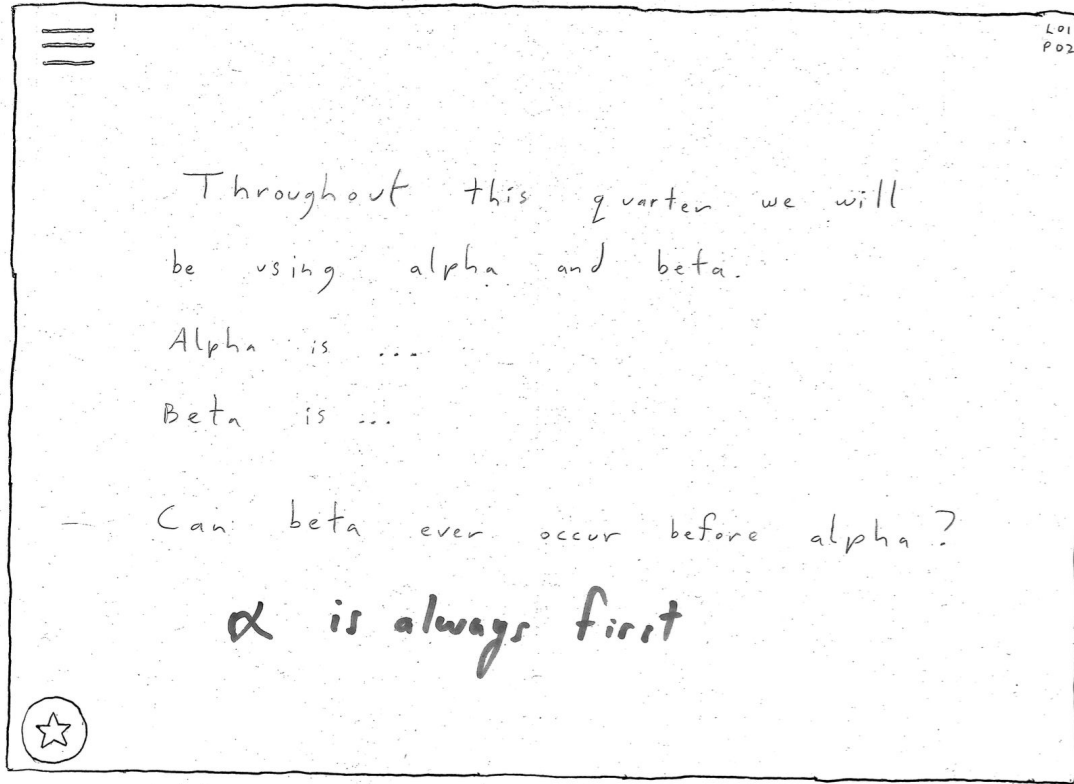 L01
P02
Throughout this quarter we will
be using alpha and beta.
Alpha is ...
Beta is ...
Can beta ever occur before alpha?
α is always first